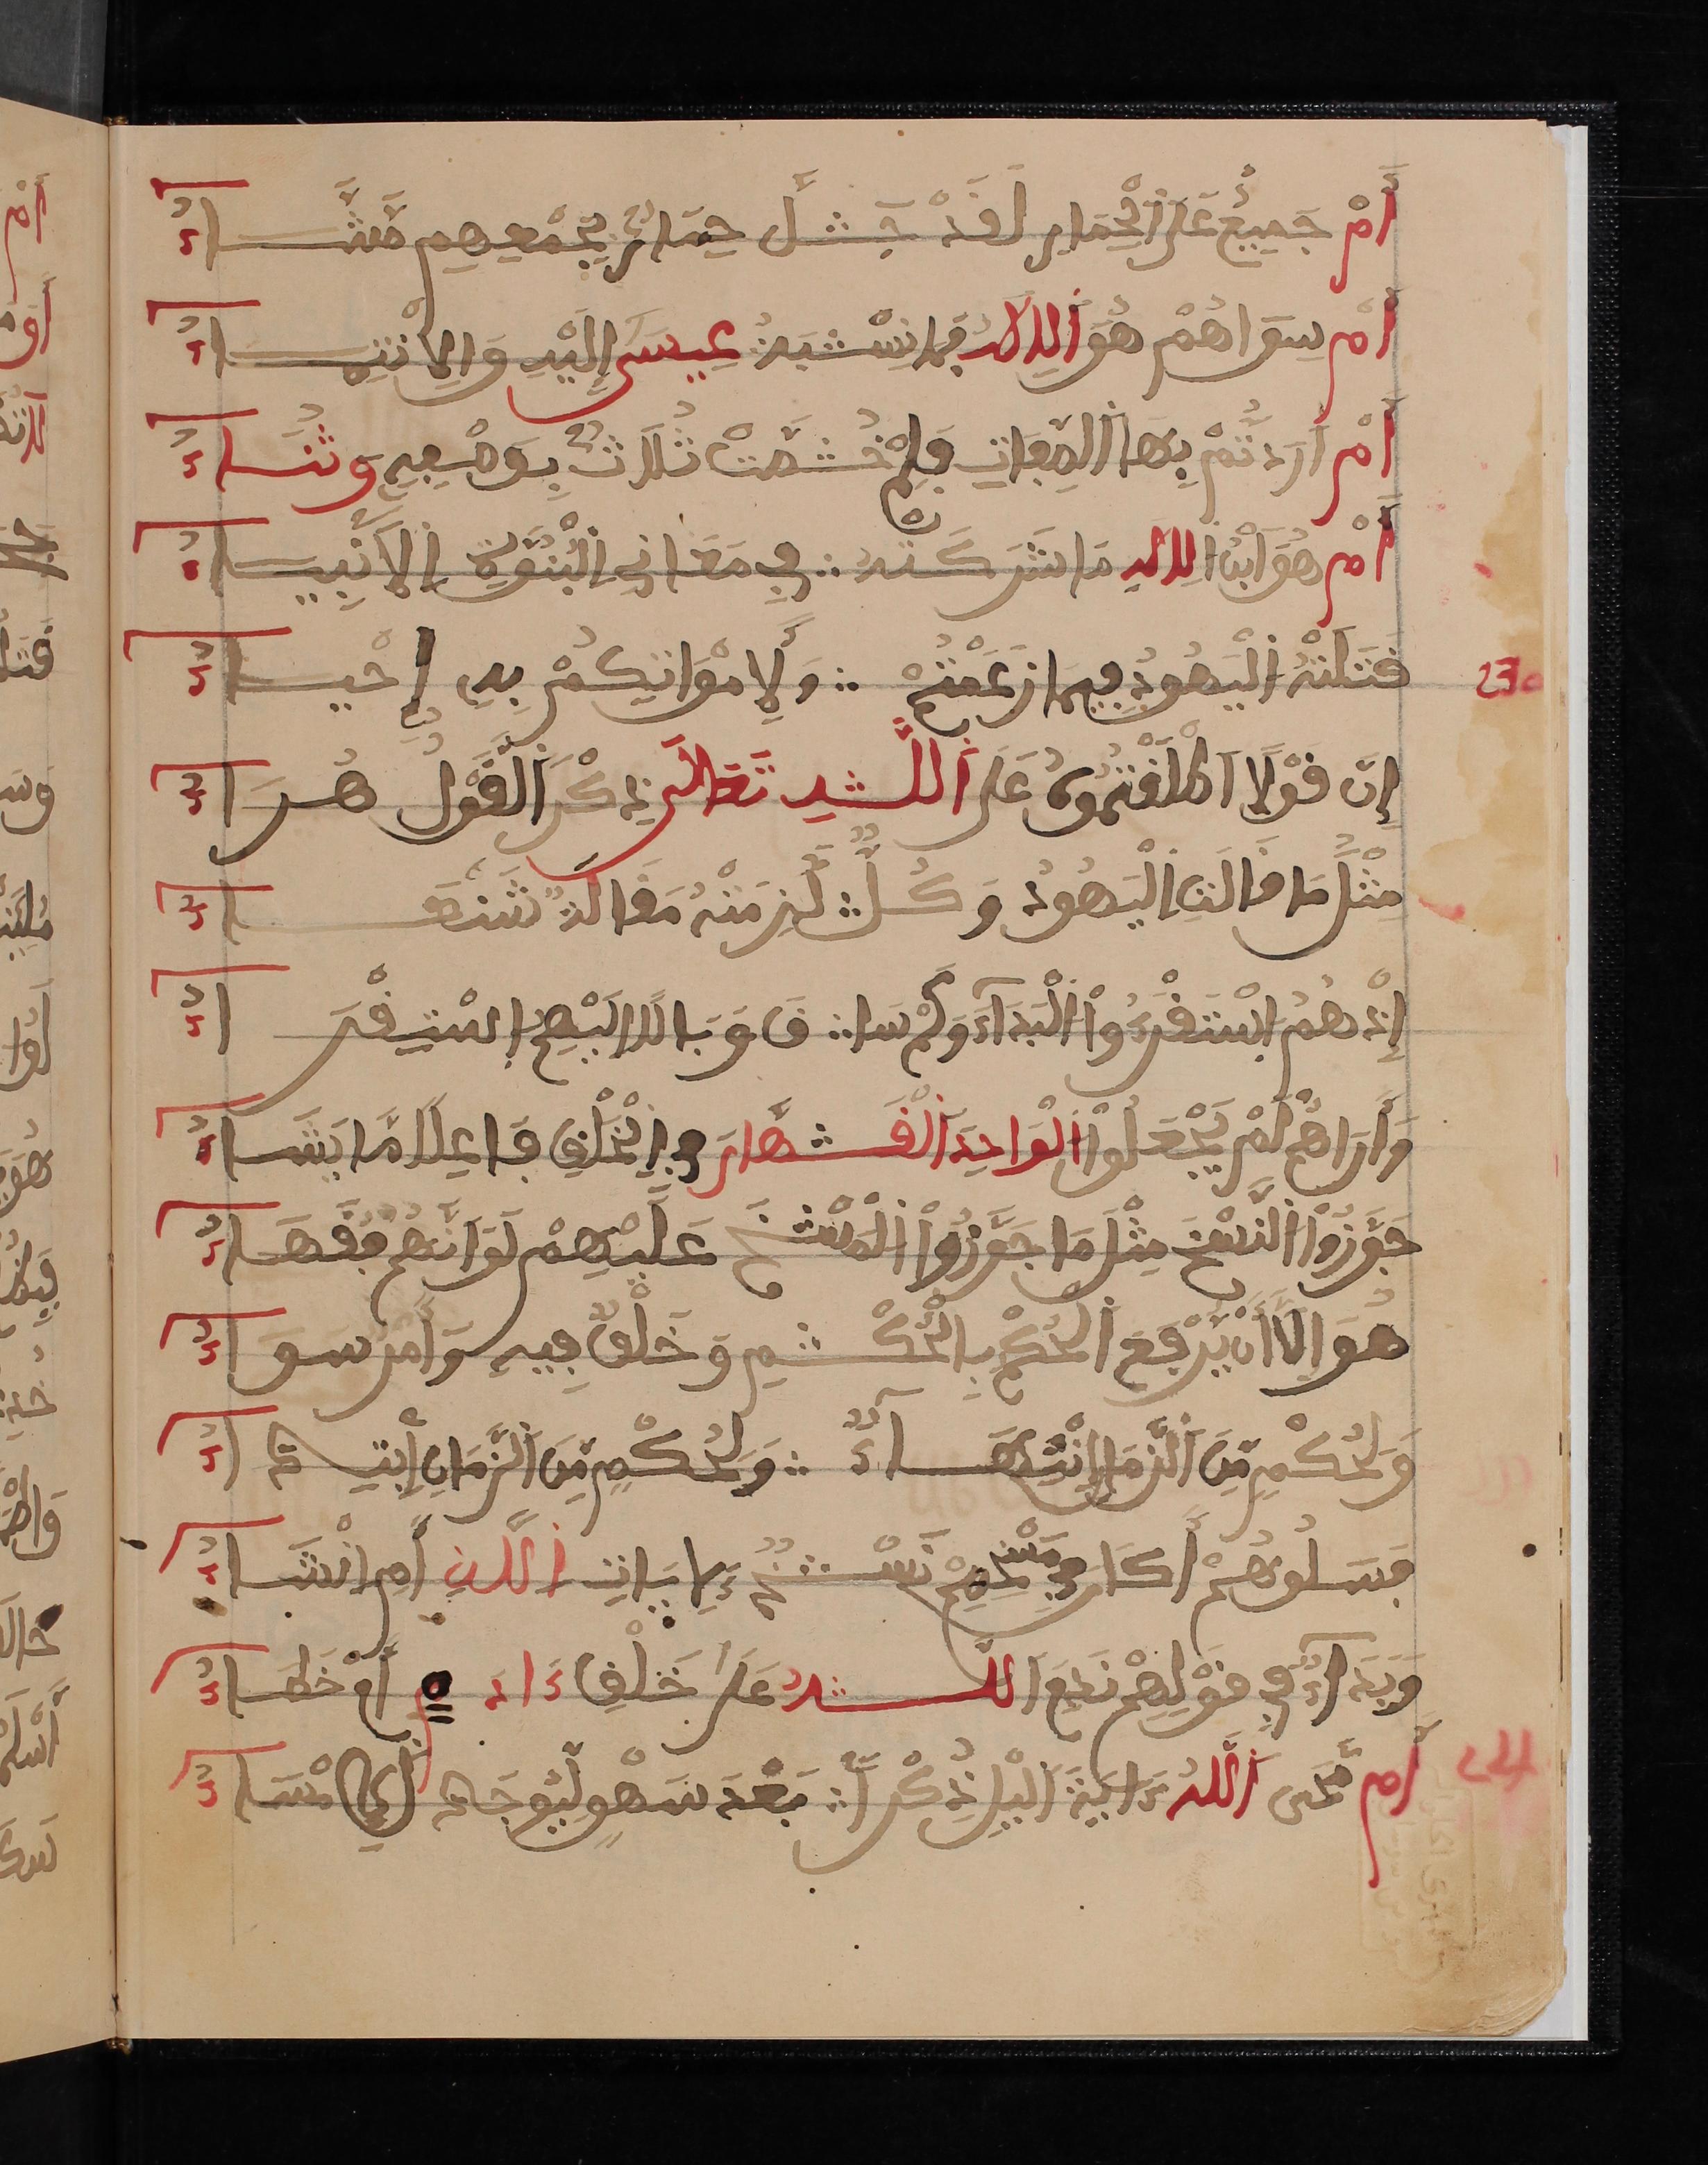 أَمْ جَمِيعٌ عَلَى الْحِمَارِ لَقَدْ جَلَّ حِمَارٌ بِجَمْعِهِم مَّشَّاءُ
أَمْ سِوَاهُمْ هُوَ الْإِلَٰهُ فَمَا نِسْبَةُ عِيسَى إِلَيْهِ وَالِانْتِمَاءُ
أَمْ أَرَدتُّمْ بِهَا الصِّفَاتِ فَلِمْ خُصَّتْ ثُلَاثٌ بِوَصْفِهِ وَثُنَاءُ
أَمْ هُوَ ابْنُ الْإِلَٰهِ مَا شَرَكَتْهُ ∴ فِي مَعَانِي الْبُنُوَّةِ الْأَنْبِيَاءُ
قَتَلَتْهُ الْيَهُودُ فِيمَا زَعَمْتُمْ ∴ وَلِأَمْوَاتِكُمْ بِهِ إِحْيَاءُ
إِنَّ قَوْلًا أَطْلَقْتُمُوهُ عَلَى اللَّهِ تَعَالَى ذِكْرًا لَقَوْلٌ هُرَاءُ
مِثْلُ مَا قَالَتِ الْيَهُودُ وَكُلٌّ لَّزِمَتْهُ مَقَالَةٌ شَنْعَاءُ
إِذْ هُمُ اسْتَقْرَءُوا الْبَدَاءَ وَكَمْ سَا ∴ قَ وَبَالًا إِلَيْهِمُ اسْتِقْرَاءُ
وَأَرَاهُمْ لَمْ يَجْعَلُوا الْوَاحِدَ الْقَهَّارَ فِي الْخَلْقِ فَاعِلًا مَّا يَشَاءُ
جَوَّزُوا النَّسْخَ مِثْلَ مَا جَوَّزُوا الْمَسْخَ عَلَيْهِمْ لَوَ انَّهُمْ فُقَهَاءُ
هُوَ إِلَّا أَنْ يُرْفَعَ الْحُكْمُ بِالْحُكْمِ وَخَلْقٌ فِيهِ وَأَمْرٌ سَوَاءُ
وَلِحُكْمٍ مِّنَ الزَّمَانِ انْتِهَاءٌ ∴ وَلِحُكْمٍ مِّنَ الزَّمَانِ ابْتِدَاءُ
فَسَلُوهُمْ أَكَانَ فِي مَسْخِهِمْ نَسْخٌ لِآيَاتِ اللَّهِ أَمِ انْشَاءُ
وَبَدَاءٌ فِي قَوْلِهِمْ نَدِمَ اللَّهُ عَلَى خَلْقِ ءَادَمَ أَمْ خَطَاءُ
أَمْ مَّحَى اللَّهُ ءَايَةَ الَّيْلِ ذُكْرًا ∴ بَعْدَ سَهْوٍ لِّيُوجَدَ الْإِمْسَاءُ
230